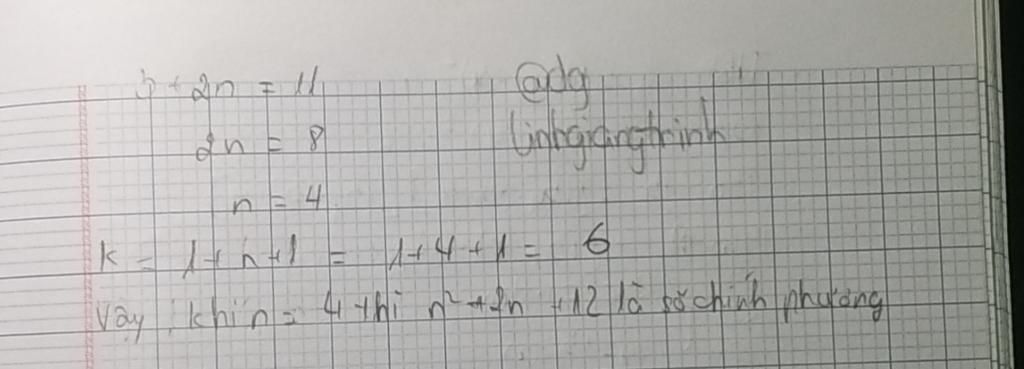 3 + 2n = 11
2n = 8
n = 4
k = 1 + n + 1 = 1 + 4 + 1 = 6
Vậy khi n = 4 thì n² + 2n + 12 là số chính phương
@dg
linhgiangtrinh